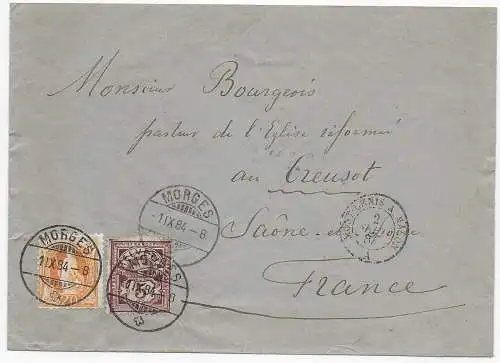 Monsieur Bourgeois
pasteur de l'Eglise réformée
au Creusot
Saône
France
MORGES
-1 IX 84 - 8
MORGES
-1 IX 84 - 8
MORGES
1 IX 84
5
A MACON
2